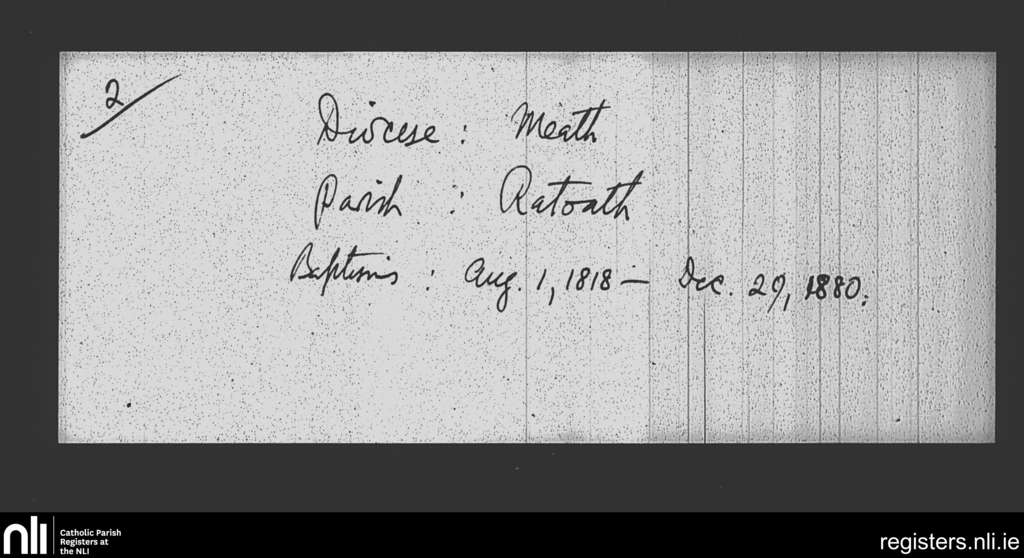 2
Diocese : Meath
Parish : Ratoath
Baptisms : Aug. 1, 1818 – Dec. 29, 1880.
nli
Catholic Parish
Registers at
the NLI
registers.nli.ie